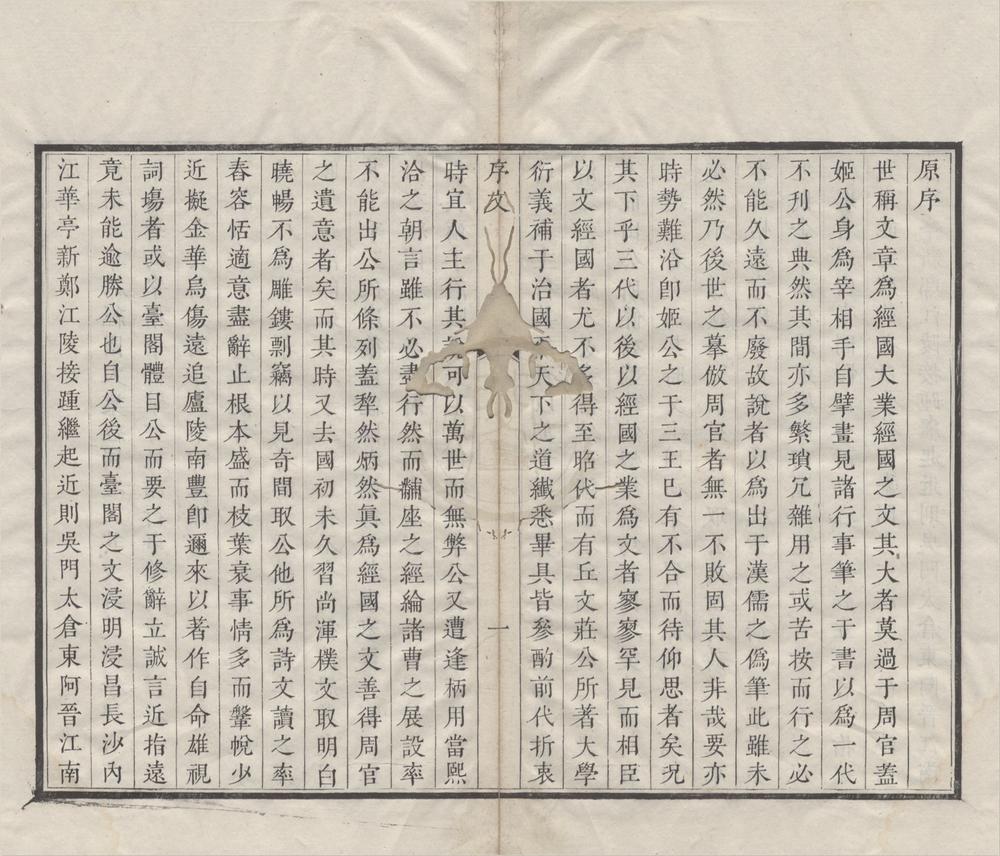 原序
世稱文章爲經國大業經國之文其大者莫過于周官蓋
姬公身爲宰相手自擘畫見諸行事筆之于書以爲一代
不刊之典然其間亦多繁瑣冗雜用之或苦按而行之必
不能久遠而不廢故說者以爲出于漢儒之僞筆此雖未
必然乃後世之摹倣周官者無一不敗固其人非哉要亦
時勢難沿卽姬公之于三王巳有不合而待仰思者矣况
其下乎三代以後以經國之業爲文者寥寥罕見而相臣
以文經國者尤不得至昭代而有丘文莊公所著大學
衍義補于治國天下之道纖悉畢具皆叅酌前代折衷
序
一
時宜人主行其可以萬世而無弊公又遭逢柄用當熙
洽之朝言雖不必盡行然而黼座之經綸諸曹之展設率
不能出公所條列蓋犂然炳然眞爲經國之文善得周官
之遺意者矣而其時又去國初未久習尚渾樸文取明白
曉暢不爲雕鏤剽竊以見奇間取公他所爲詩文讀之率
舂容恬適意盡辭止根本盛而枝葉衰事情多而鞶帨少
近擬金華烏傷遠追廬陵南豐卽邇來以著作自命雄視
詞塲者或以臺閣體目公而要之于修辭立誠言近指遠
竟未能逾勝公也自公後而臺閣之文浸明浸昌長沙內
江華亭新鄭江陵接踵繼起近則吳門太倉東阿晉江南